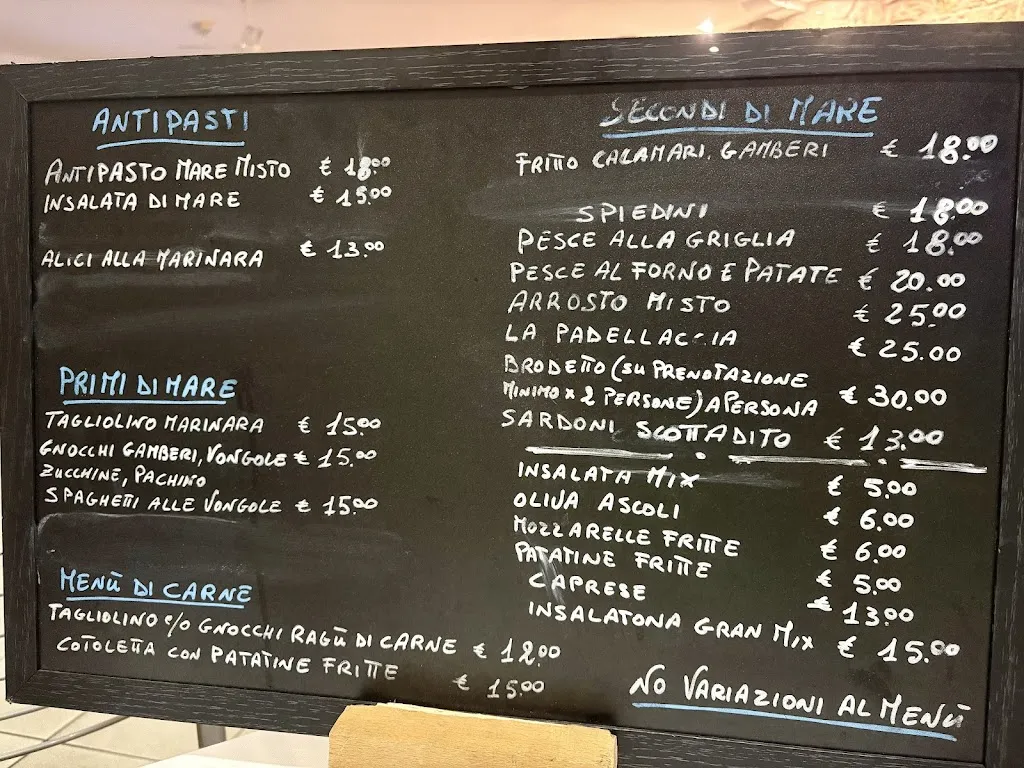 ANTIPASTI
ANTIPASTO MARE MISTO € 18.00
INSALATA DI MARE € 15.00
ALICI ALLA MARINARA € 13.00
PRIMI DI MARE
TAGLIOLINO MARINARA € 15.00
GNOCCHI GAMBERI, VONGOLE € 15.00
ZUCCHINE, PACHINO
SPAGHETTI ALLE VONGOLE € 15.00
MENÙ DI CARNE
TAGLIOLINO e/o GNOCCHI RAGÙ DI CARNE € 12.00
COTOLETTA CON PATATINE FRITTE € 15.00
SECONDI DI MARE
FRITTO CALAMARI. GAMBERI € 18.00
SPIEDINI € 18.00
PESCE ALLA GRIGLIA € 18.00
PESCE AL FORNO E PATATE € 20.00
ARROSTO MISTO € 25.00
LA PADELLACCIA € 25.00
BRODETTO (SU PRENOTAZIONE
MINIMO x 2 PERSONE) A PERSONA € 30.00
SARDONI SCOTTADITO € 13.00
INSALATA MIX € 5.00
OLIVA ASCOLI € 6.00
MOZZARELLE FRITTE € 6.00
PATATINE FRITTE € 5.00
CAPRESE € 13.00
INSALATONA GRAN MIX € 15.00
NO VARIAZIONI AL MENÙ